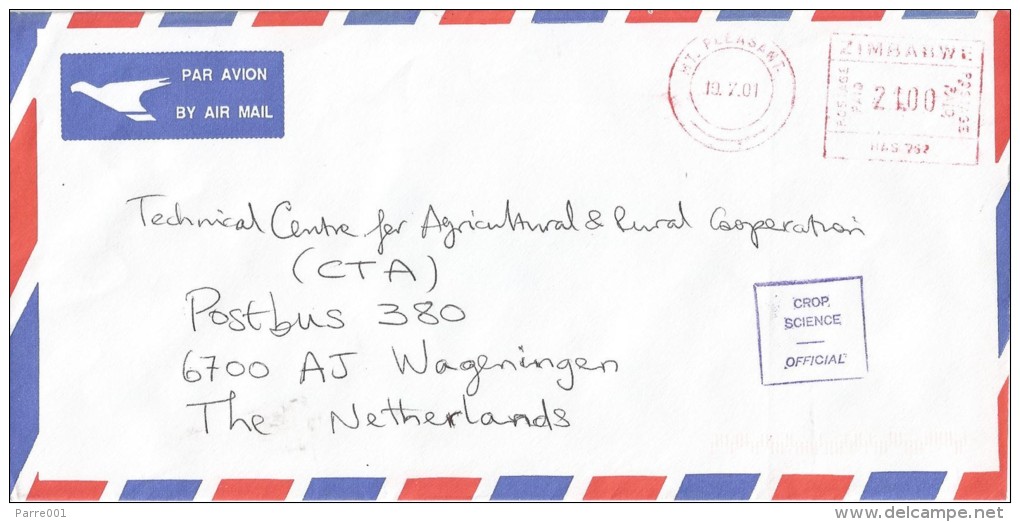 PAR AVION
BY AIR MAIL
MT. PLEASANT
19.X.01
ZIMBABWE
POSTAGE
PAID
2100
Technical Centre for Agricultural & Rural Cooperation
(CTA)
Postbus 380
6700 AJ Wageningen
The Netherlands
CROP
SCIENCE
OFFICIAL
Parre001
delcampe.net